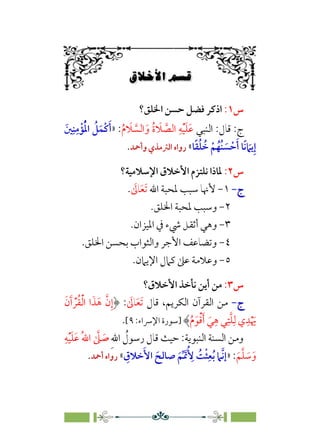 قسم الأخلاق
س١: اذكر فضل حسن الخلق؟
ج: قال: النبي عَلَيْهِ الصَّلَاةُ وَالسَّلَامُ: «أَكْمَلُ الْمُؤْمِنِينَ
إِيمَانًا أَحْسَنُهُمْ خُلُقًا» رواه الترمذي وأحمد.
س٢: لماذا نلتزم الأخلاق الإسلامية؟
ج- ١- لأنها سبب لمحبة الله تَعَالَىٰ.
٢- وسبب لمحبة الخلق.
٣- وهي أثقل شيء في الميزان.
٤- وتضاعف الأجر والثواب بحسن الخلق.
٥- وعلامة على كمال الإيمان.
س٣: من أين نأخذ الأخلاق؟
ج- من القرآن الكريم، قال تَعَالَىٰ: ﴿إِنَّ هَٰذَا الْقُرْآنَ
يَهْدِي لِلَّتِي هِيَ أَقْوَمُ﴾ [سورة الإسراء: ٩].
ومن السنة النبوية: حيث قال رسولُ اللهِ صَلَّى اللهُ عَلَيْهِ
وَسَلَّمَ: «إنَّمَا بُعِثْتُ لِأُتَمِّمَ صالحَ الأخلاقِ» رواه أحمد.